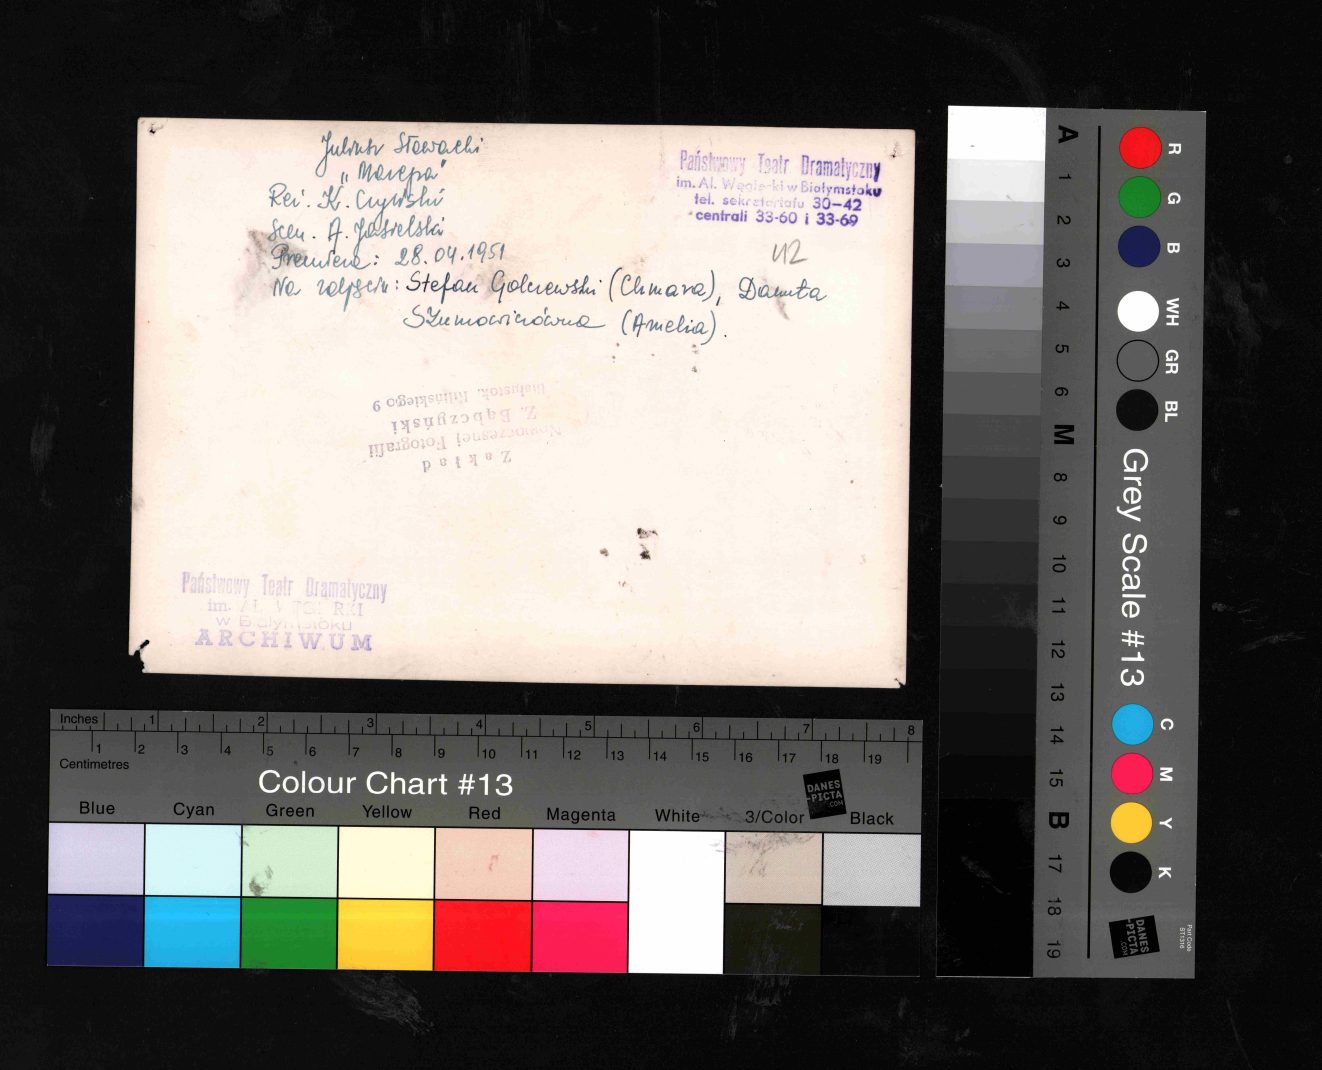 Juliusz Słowacki
„Mazepa”
Reż. K. Czyński
Scen. A. Jasielski
Premiera: 28.04.1951
Na zdjęciu: Stefan Golczewski (Chmara), Danuta
Szumowiczówna (Amelia).
Państwowy Teatr Dramatyczny
im. Al. Węgierki w Białymstoku
tel. sekretariatu 30-42
centrali 33-60 i 33-69
42
Zakład
Nowoczesnej Fotografii
Z. Bąbczyński
Białystok, Kilińskiego 9
Państwowy Teatr Dramatyczny
im. AL.
w Białymstoku
ARCHIWUM
Inches 1 2 3 4 5 6 7 8
1 2 3 4 5 6 7 8 9 10 11 12 13 14 15 16 17 18 19
Centimetres
Colour Chart #13
DANES
-PICTA
.COM
Blue Cyan Green Yellow Red Magenta White 3/Color Black
A 1 2 3 4 5 6 M 8 9 10 11 12 13 14 15 B 17 18 19
R G B WH GR BL
Grey Scale #13
C M Y K
DANES
-PICTA
.COM
Part Code
ST1316